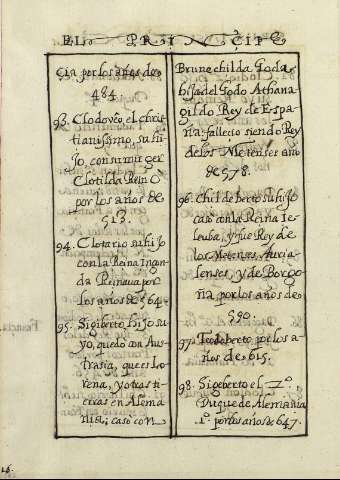 EL PRINCIPE
çia por los años de
484
93. Clodoveo el chris
tianissimo, su hi
jo, con su muger
Clotilda Reinó
por los años de
513.
94. Clotario su hijo
con la Reina
Reinava por
los años de 564.
95. Sigiberto hijo su
yo, quedó con Aus
trasia, que es Lo
rena, y otras tie
rras en Alema
nia, caso con
Brunechilda Goda
hija del Godo Athana
gildo Rey de Espa
ña fallecio siendo Rey
de los Metenses año
de 578.
96. Childeberto su hijo
caso con la Reina
y fue Rey de
los Metenses, Aurelia
nenses, y de Borgo
ña por los años de
590.
97. Teodoberto por los a
ños de 615.
98. Sigeberto el 2º.
Duque de Alemania
1º. por los años de 647.